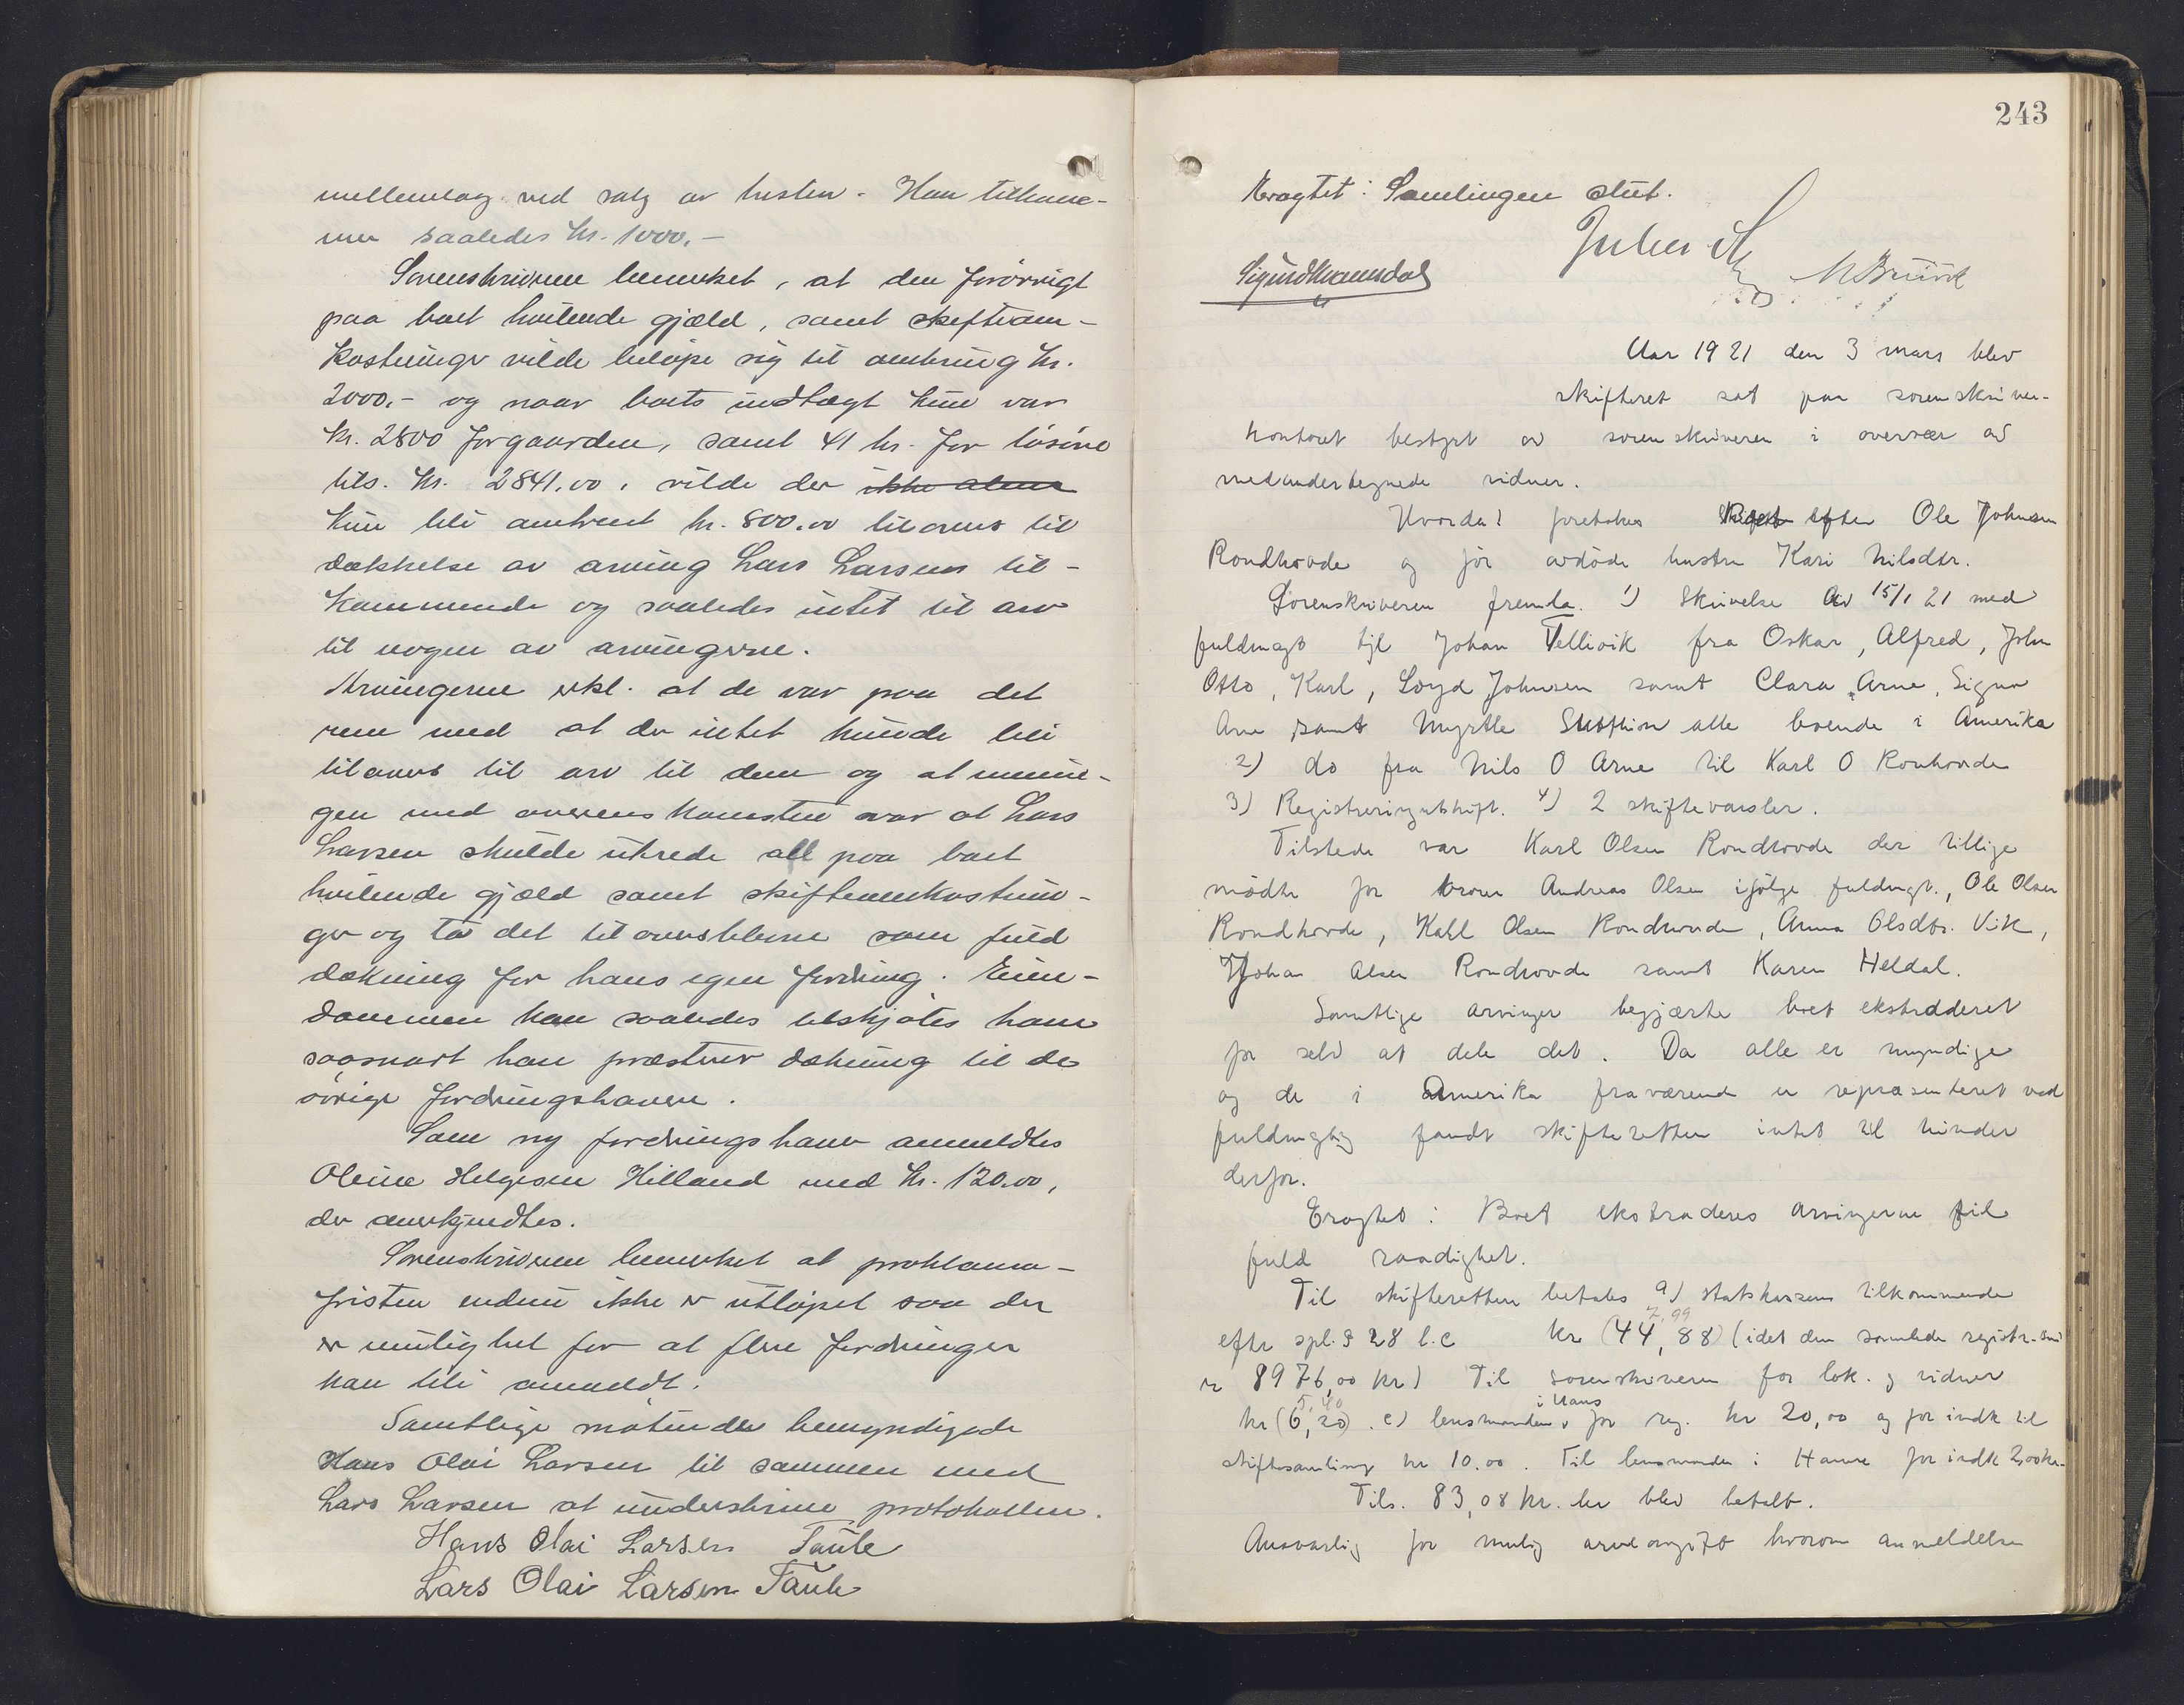 mellemlag ved salg av hesten. Han tilkom-
mer saaledes kr. 1000,-
Sorenskriveren bemerket, at den forøvrigt
paa boet hvilende gjæld, samt skifteom-
kostninger vilde beløpe sig til omkring kr.
2000,- og naar boets indtægt kun var
kr. 2800 for gaarden, samt 41 kr. for løsøre
tils. kr. 2841,00, vilde der ikke
kun bli omtrent kr. 800,00 tilovers til
dækkelse av arving Lars Larsens til-
kommende og saaledes intet til arv
til nogen av arvingerne.
Arvingerne erkl. at de var paa det
rene med at der intet kunde bli
tilovers til arv til dem og at menin-
gen med overenskomsten var at Lars
Larsen skulde utrede all paa boet
hvilende gjæld samt skifteomkostnin-
ger og ta det tiloversblevne som fuld
dækning for hans egen fordring. Eien-
dommen kan saaledes utskjøtes ham
saasnart han præsterer dækning til de
øvrige fordringshavere.
Som ny fordringshaver anmeldtes
Oline Helgesen Hilland med kr. 120,00,
der anerkjendtes.
Sorenskriveren bemerket at proklama-
fristen endnu ikke er utløpet saa der
er mulighet for at flere fordringer
kan bli anmeldt.
Samtlige møtende bemyndigede
Hans Olai Larsen til sammen med
Lars Larsen at underskrive protokollen.
Hans Olai Larsen Taule
Lars Olai Larsen Taule
243
Eragtet: Samlingen slut.
Sigurd Kvamsdal
Aar 1921 den 3 mars blev
skifteret sat paa sorenskriver-
kontoret bestyrt av sorenskriveren i overvær av
medundertegnede vidner.
Hvorda! foretokes Skifte efter Ole Johnsen
Rondhovde og før avdøde hustru Kari Nilsdtr.
Sorenskriveren fremla. 1) Skrivelse av 15/1 21 med
fuldmagt til Johan Tellevik fra Oskar, Alfred, John
Otto, Karl, Loyd Johnsen samt Clara Arne, Signe
Arne samt Myrtle alle boende i Amerika
2) do fra Nils O Arne til Karl O Ronhovde
3) Registreringutskrift. 4) 2 skiftevarsler.
Tilstede var Karl Olsen Rondhovde der tillige
mødte for broren Andreas Olsen ifølge fuldmgt., Ole Olsen
Rondhovde, Olsen Rondhovde, Anna Olsdtr. Vik,
Johan Olsen Rondhovde samt Karen Heldal.
Samtlige arvinger begjærte boet ekstraderet
for selv at dele det. Da alle er myndige
og de i Amerika fraværende er repræsenteret ved
fuldmægtig fandt skifteretten intet til hinder
derfor.
Eragtet: Boet ekstraderes arvingerne til
fuld raadighet.
Til skifteretten betales a) statskassens tilkommende
7,99
efter spl. § 28 l.c kr (44,88) (idet den samlede registr.sum
er 8976,00 kr) Til sorenskriveren for lok. og vidner
5,40 i Haus
kr (6,20). c) lensmanden for reg. kr 20,00 og for indk til
skiftesamling kr 10.00. Til lensmanden i Hamre for indk 2,00kr.
Tils. 83,08 kr. der blev betalt.
Ansvarlig for mulig arveavgift hvorom anmeldelse